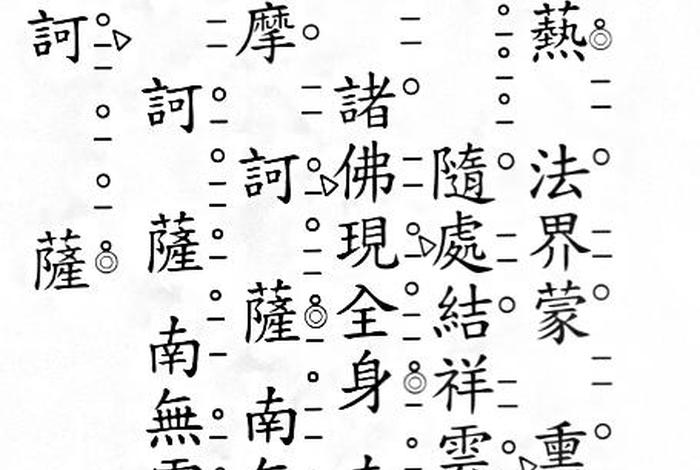 熱法界蒙熏
隨處結祥雲
諸佛現全身南
摩訶薩南無
訶薩南無雲
訶薩